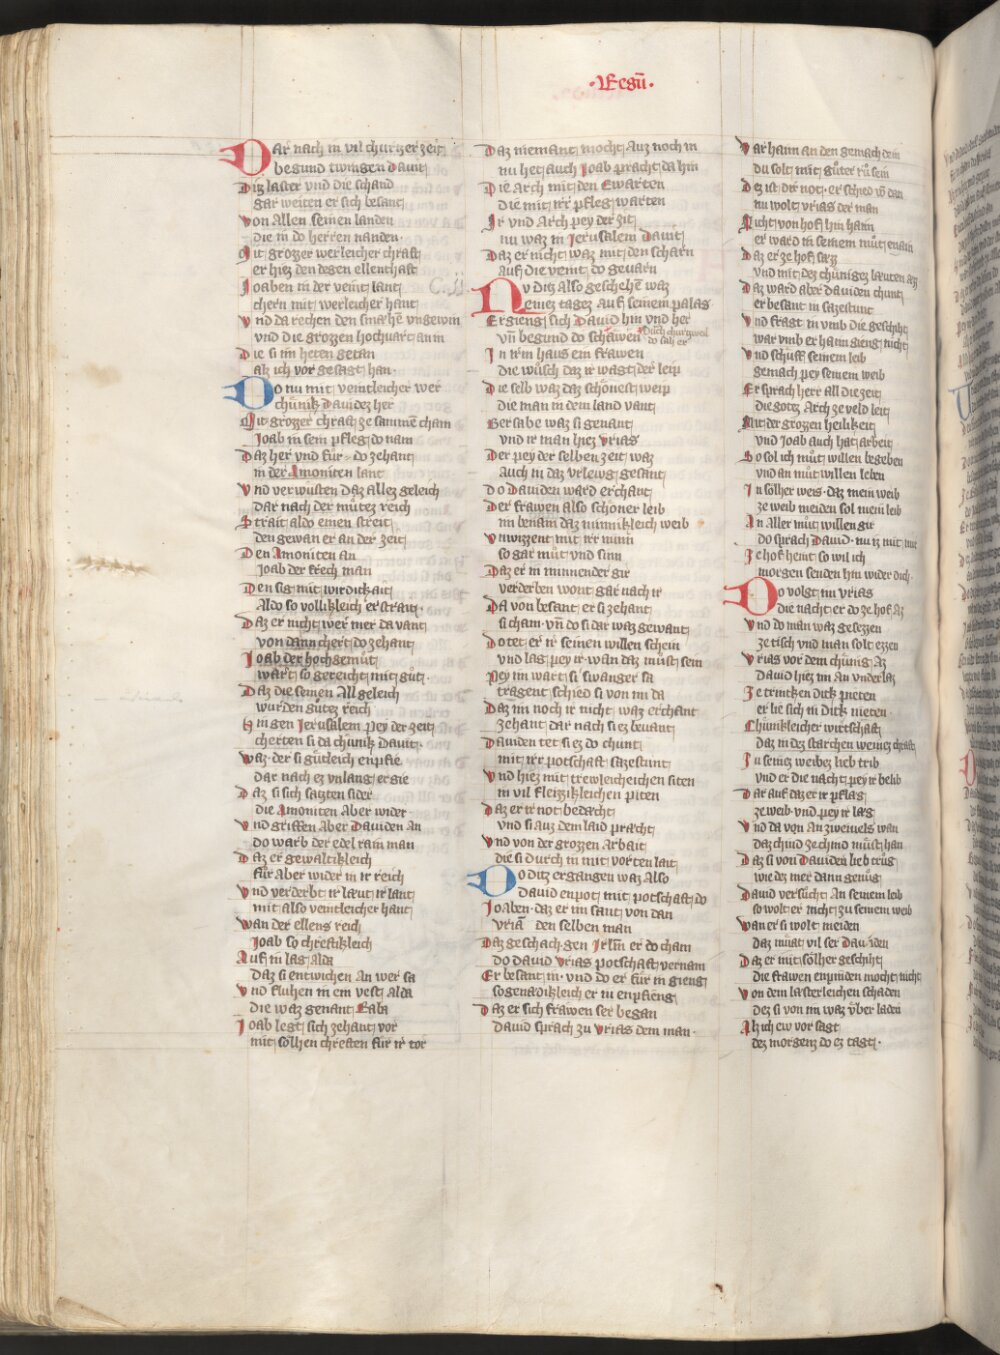 ·Regū·
Dar nach in vil churczer zeit
begund twingen Dauit
Diz laster vnd die schand
gar weiten er sich besant
von Allen seinen landen
die in do herren nanden·
Mit grozzer werleicher chraft
er hiez den degen ellenthaft
Joaben in der veint lant
chern mit werleicher hant
vnd da rechen den smahē vngewin
vnd die grozzen hochuart an in
Die si im heten getan
alz ich vor gesagt han·
Do nu mit veintleicher wer
chūnik Dauidez her
Mit grozzer chraft ze sammē cham
Joab in sein pfleg do nam
Daz her vnd fur do zehant
in der Amoniten lant
vnd verwůsten daz allez geleich
dar nach der můtez reich
Strait aldo einen streit
den gewan er an der zeit
Den Amoniten an
Joab der frech man
Den sig mit wirdikait
Aldo so vollikleich er strait
Daz er nicht wer mer da vant
von dann chert do zehant
Joab der hochgemůt
wart so gereicht mit gůt·
Daz die seinen All geleich
wurden gutez reich
Hin gen Jerusalem pey der zeit
cherten si da chūnik Dauit·
waz der si gůtleich enpfie
dar nach ez vnlang ergie
Daz si sich sazten sider
die Amoniten Aber wider·
vnd griffen Aber Dauiden An
do warb der edel rain man
Daz er gewaltikleich
für aber wider in ir reich
vnd verderbt ir læut ir lant
mit also veintleicher hant
wan der ellens reich
Joab so chreftikleich
Auf in lag alda
daz si entwichen An wer sa
vnd fluhen in ein vest alda
die waz genant Raba
Joab legt sich zehant vor
mit sölhen chreften für ir tor
Daz niemant mocht auz noch in
nu het auch Joab pracht da hin
Die Arch mit den Ewarten
die mit irr pfleg warten
Ir vnd Arch pey der zit
nu waz in Jerusalem Dauit
Daz er nicht waz mit den scharn
auf die veint do geuarn
Nu diz also geschehē waz
einez tagez auf seinem palas
Ergieng sich Dauid hin vnd her
vn̄ begund do schawen
do sah er
In irm haus ein frawen
die wůsch daz ir wagt der leip
Die selb waz daz schönest weip
die man in dem land vant
Bersabe waz si genant
vnd ir man hiez vrias
Der pey der selben zeit waz
auch in daz vrlewg gesant
Do Dauiden ward erchant
Der frawen also schoner leib
im benam daz minnikleich weib
vnwizzent mit irr minn
so gar můt vnd sinn
Daz er in minnender gir
verderben wont gar nach ir
Da von besant er si zehant
si cham vn̄ do si dar waz gewant
Do tet er ir seinen willen schein
vnd lag pey ir wan daz můst sein
Pey im wart si swanger sa
tragent schied si von im da
Daz im noch ir nicht waz erchant
zehant dar nach si ez beuant
Dauiden tet si ez do chunt
mit irr potschaft sazestunt
vnd hiez mit trewleicheichen siten
in vil fleizzikleichen piten
Daz er ir not bedacht
vnd si auz dem laid pracht
vnd von der grozzen Arbait
die si durch in mit vorten lait
Do ditz ergangen waz Also
dauid enpot mit potschaft do
Joaben daz er im sant von dan
vriā den selben man
Daz geschach gen Jrlm er do cham
do dauid vrias potschaft vernam
Er besant in· vnd do er für in gieng
so genadikleich er in enpfieng
Daz er sich frawen ser began
dauid sprach zu vrias dem man·
var hann an den gemach dein
du solt mit gůter rů sein
Dez ist dir not· er schied vō dan
nu wolt vrias der man
Nicht von hof hin hann
er ward in seinem můt enain
Daz er ze hof sazz
vnd mit dez chünigez læuten az
Daz ward aber dauiden chunt
er besant in sazestunt
vnd fragt in vmb die geschiht
war vmb er haim gieng nicht
vnd schuff seinem leib
gemach pey seinem weib
Er sprach herr all die zeit
die gotez Arch ze veld leit
Mit der grozzen heilikeit
vnd Joab auch hat arbeit
So sol ich můt willen begeben
vnd an můt willen leben
In sölher weis· daz mein weib
ze weib meiden sol mein leib
An Aller můt willen gir
do sprach Dauid· nu iz mit mir
Ze hof heint so wil ich
morgen senden hin wider dich·
Do volgt im vrias
die nacht er do ze hof Az
vnd do man waz gesezzen
ze tisch vnd man solt ezzen
vrias vor dem chünig Az
Dauid hiez im An vnderlaz
Ze trinken dick pieten
er lie sich in Dick nieten·
Chunikleicher wirtschaft
daz in dez starchen weinez chraft
Zu seinez weibez lieb trib
vnd er die nacht pey ir belib
Dar auf daz er ir pflag
ze weib vnd pey ir læg
vnd da von An zweiuels wan
daz chind ze chind můst han
Daz si von Dauiden lieb trůg
wie dez mer dann genůg
Dauid versůcht An seinem leib
so wolt er nicht zu seinem weib
wan er si wolt meiden
daz můt vil ser Dauiden
Daz er mit sölher geschiht
die frawen enpinden mocht nicht
von dem lasterleichen schaden
dez si von im waz vber laden
Alz ich ew vor sagt
dez morgenz do ez tagt·